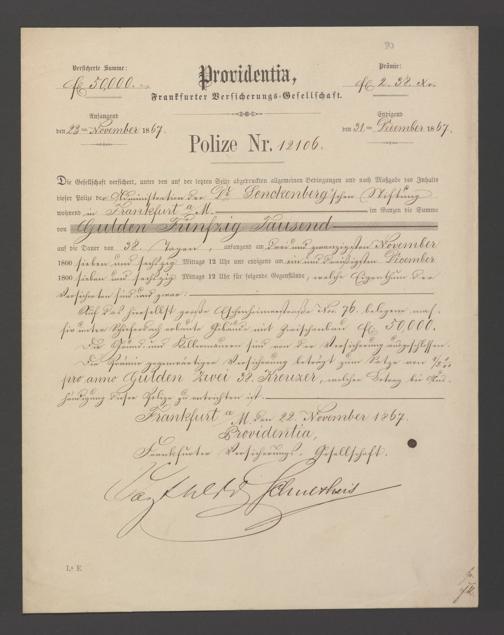 Versicherte Summe:
Prämie:
Providentia,
fl. 50,000.
fl. 2. 38. Xr.
Frankfurter Versicherungs-Gesellschaft.
Anfangend
Endigend
den 23ten November 1867.
den 31ten December 1867.
Polize Nr. 12106.
Die Gesellschaft versichert, unter den auf der letzten Seite abgedruckten allgemeinen Bedingungen und nach Maßgabe des Inhalts
dieser Polize der Administration der Dr. Senckenberg'schen Stiftung
wohnend in Frankfurt a. M. im Ganzen die Summe
von Gulden Fünfzig Tausend
auf die Dauer von 38. Tagen, anfangend am drei und zwanzigsten November
1800 sieben und sechzig Mittags 12 Uhr und endigend am ein und dreißigsten December
1800 sieben und sechzig Mittags 12 Uhr für folgende Gegenstände, welche Eigenthum der
Versicherten sind und zwar:
Auf das hierselbst große Eschenheimerstraße Nro. 76. belegene
unter Schieferdach erbaute Gebäude mit Zwischenbau fl. 50,000.
Der Grund und Kellermauern sind von der Versicherung ausgeschlossen.
Die Prämie gegenwärtiger Versicherung beträgt zum Satze von
pro anno Gulden zwei 38. Kreuzer, welcher Betrag bei Aus-
händigung dieser Polize zu entrichten ist.
Frankfurt a. M. den 22. November 1867.
Providentia,
Frankfurter Versicherungs-Gesellschaft.
L.a E.